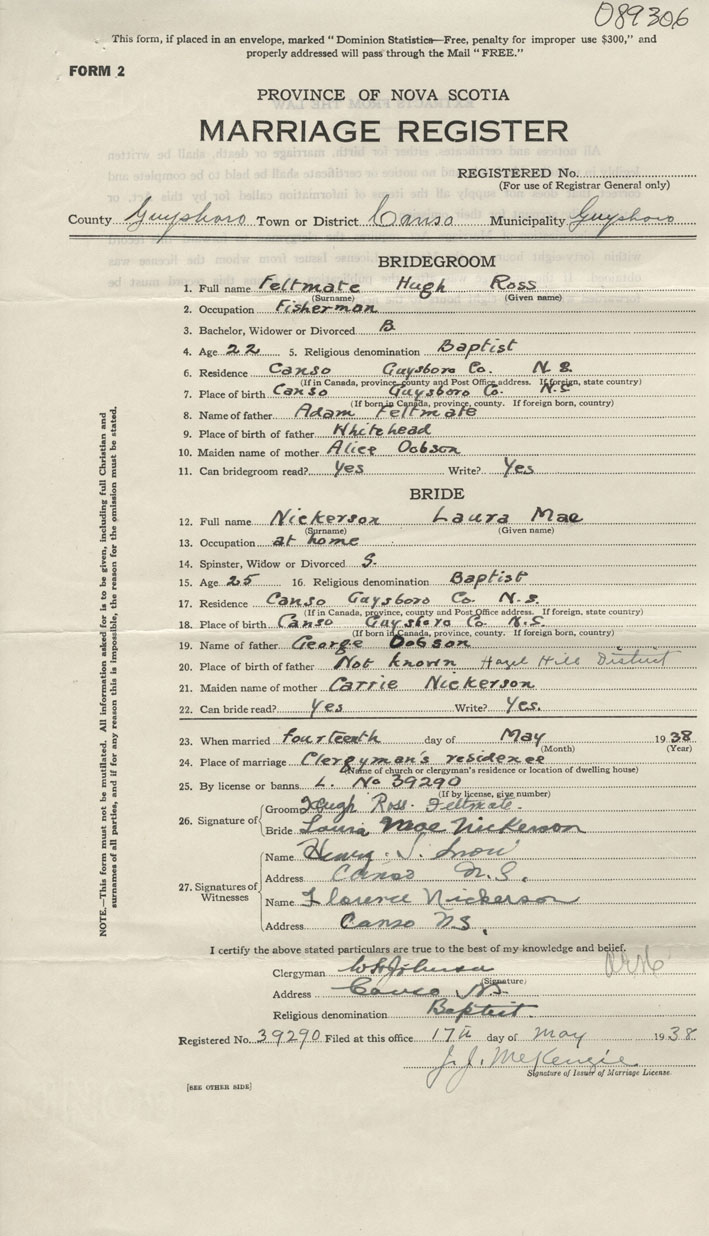 089306
This form, if placed in an envelope, marked "Dominion Statistics—Free, penalty for improper use $300," and
properly addressed will pass through the Mail "FREE."
FORM 2
PROVINCE OF NOVA SCOTIA
MARRIAGE REGISTER
REGISTERED No.
(For use of Registrar General only)
County Guysboro Town or District Canso Municipality Guysboro
BRIDEGROOM
1. Full name Feltmate Hugh Ross
(Surname) (Given name)
2. Occupation Fisherman
3. Bachelor, Widower or Divorced B
4. Age 22 5. Religious denomination Baptist
6. Residence Canso Guysboro Co. N.S.
(If in Canada, province, county and Post Office address. If foreign, state country)
7. Place of birth Canso Guysboro Co. N.S
(If born in Canada, province, county. If foreign born, country)
8. Name of father Adam Feltmate
9. Place of birth of father Whitehead
10. Maiden name of mother Alice Dobson
11. Can bridegroom read? Yes Write? Yes
BRIDE
12. Full name Nickerson Laura Mae
(Surname) (Given name)
13. Occupation at home
14. Spinster, Widow or Divorced S.
15. Age 25 16. Religious denomination Baptist
17. Residence Canso Guysboro Co. N.S.
(If in Canada, province, county and Post Office address. If foreign, state country)
18. Place of birth Canso Guysboro Co. N.S.
(If born in Canada, province, county. If foreign born, country)
19. Name of father George Dobson
20. Place of birth of father Not known Hazel Hill District
21. Maiden name of mother Carrie Nickerson
22. Can bride read? Yes Write? Yes.
23. When married fourteenth day of May 1938
(Month) (Year)
24. Place of marriage Clergyman's residence
(Name of church or clergyman's residence or location of dwelling house)
25. By license or banns L. No 39290
(If by license, give number)
26. Signature of
Groom Hugh Ross Feltmate.
Bride Laura Mae Nickerson
27. Signatures of Witnesses
Name Henry S. Snow
Address Canso N.S.
Name Florence Nickerson
Address Canso N.S.
I certify the above stated particulars are true to the best of my knowledge and belief.
Clergyman
(Signature)
Address Canso N.S.
Religious denomination Baptist.
Registered No. 39290 Filed at this office 17th day of May 1938.
J. J. McKenzie
Signature of Issuer of Marriage License.
[SEE OTHER SIDE]
NOTE.—This form must not be mutilated. All information asked for is to be given, including full Christian and
surnames of all parties, and if for any reason this is impossible, the reason for the omission must be stated.